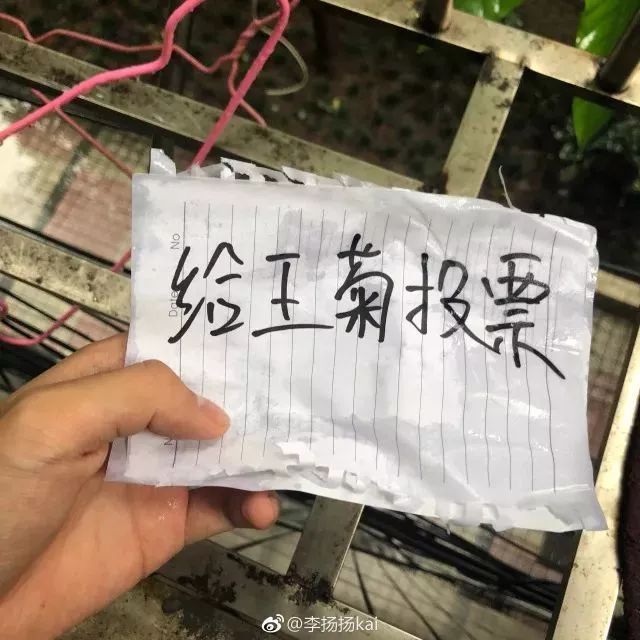 给王菊投票
No
Date
@李扬扬kai